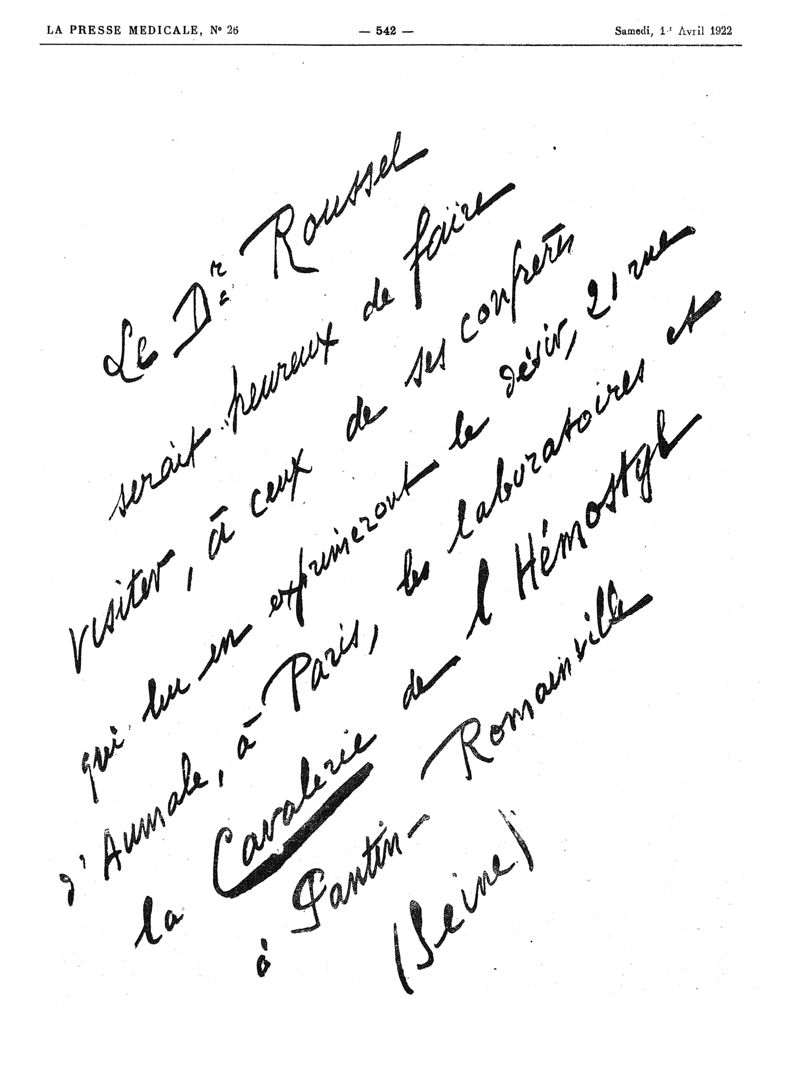 LA PRESSE MEDICALE, N° 26 — 542 — Samedi, 1er Avril 1922
Le Dr Roussel
serait heureux de faire
visiter, à ceux de ses confrères
qui lui en exprimeront le désir, 21 rue
d'Aumale, à Paris, les laboratoires et
la Cavalerie de l'Hémostyl
à Pantin-Romainville
(Seine)